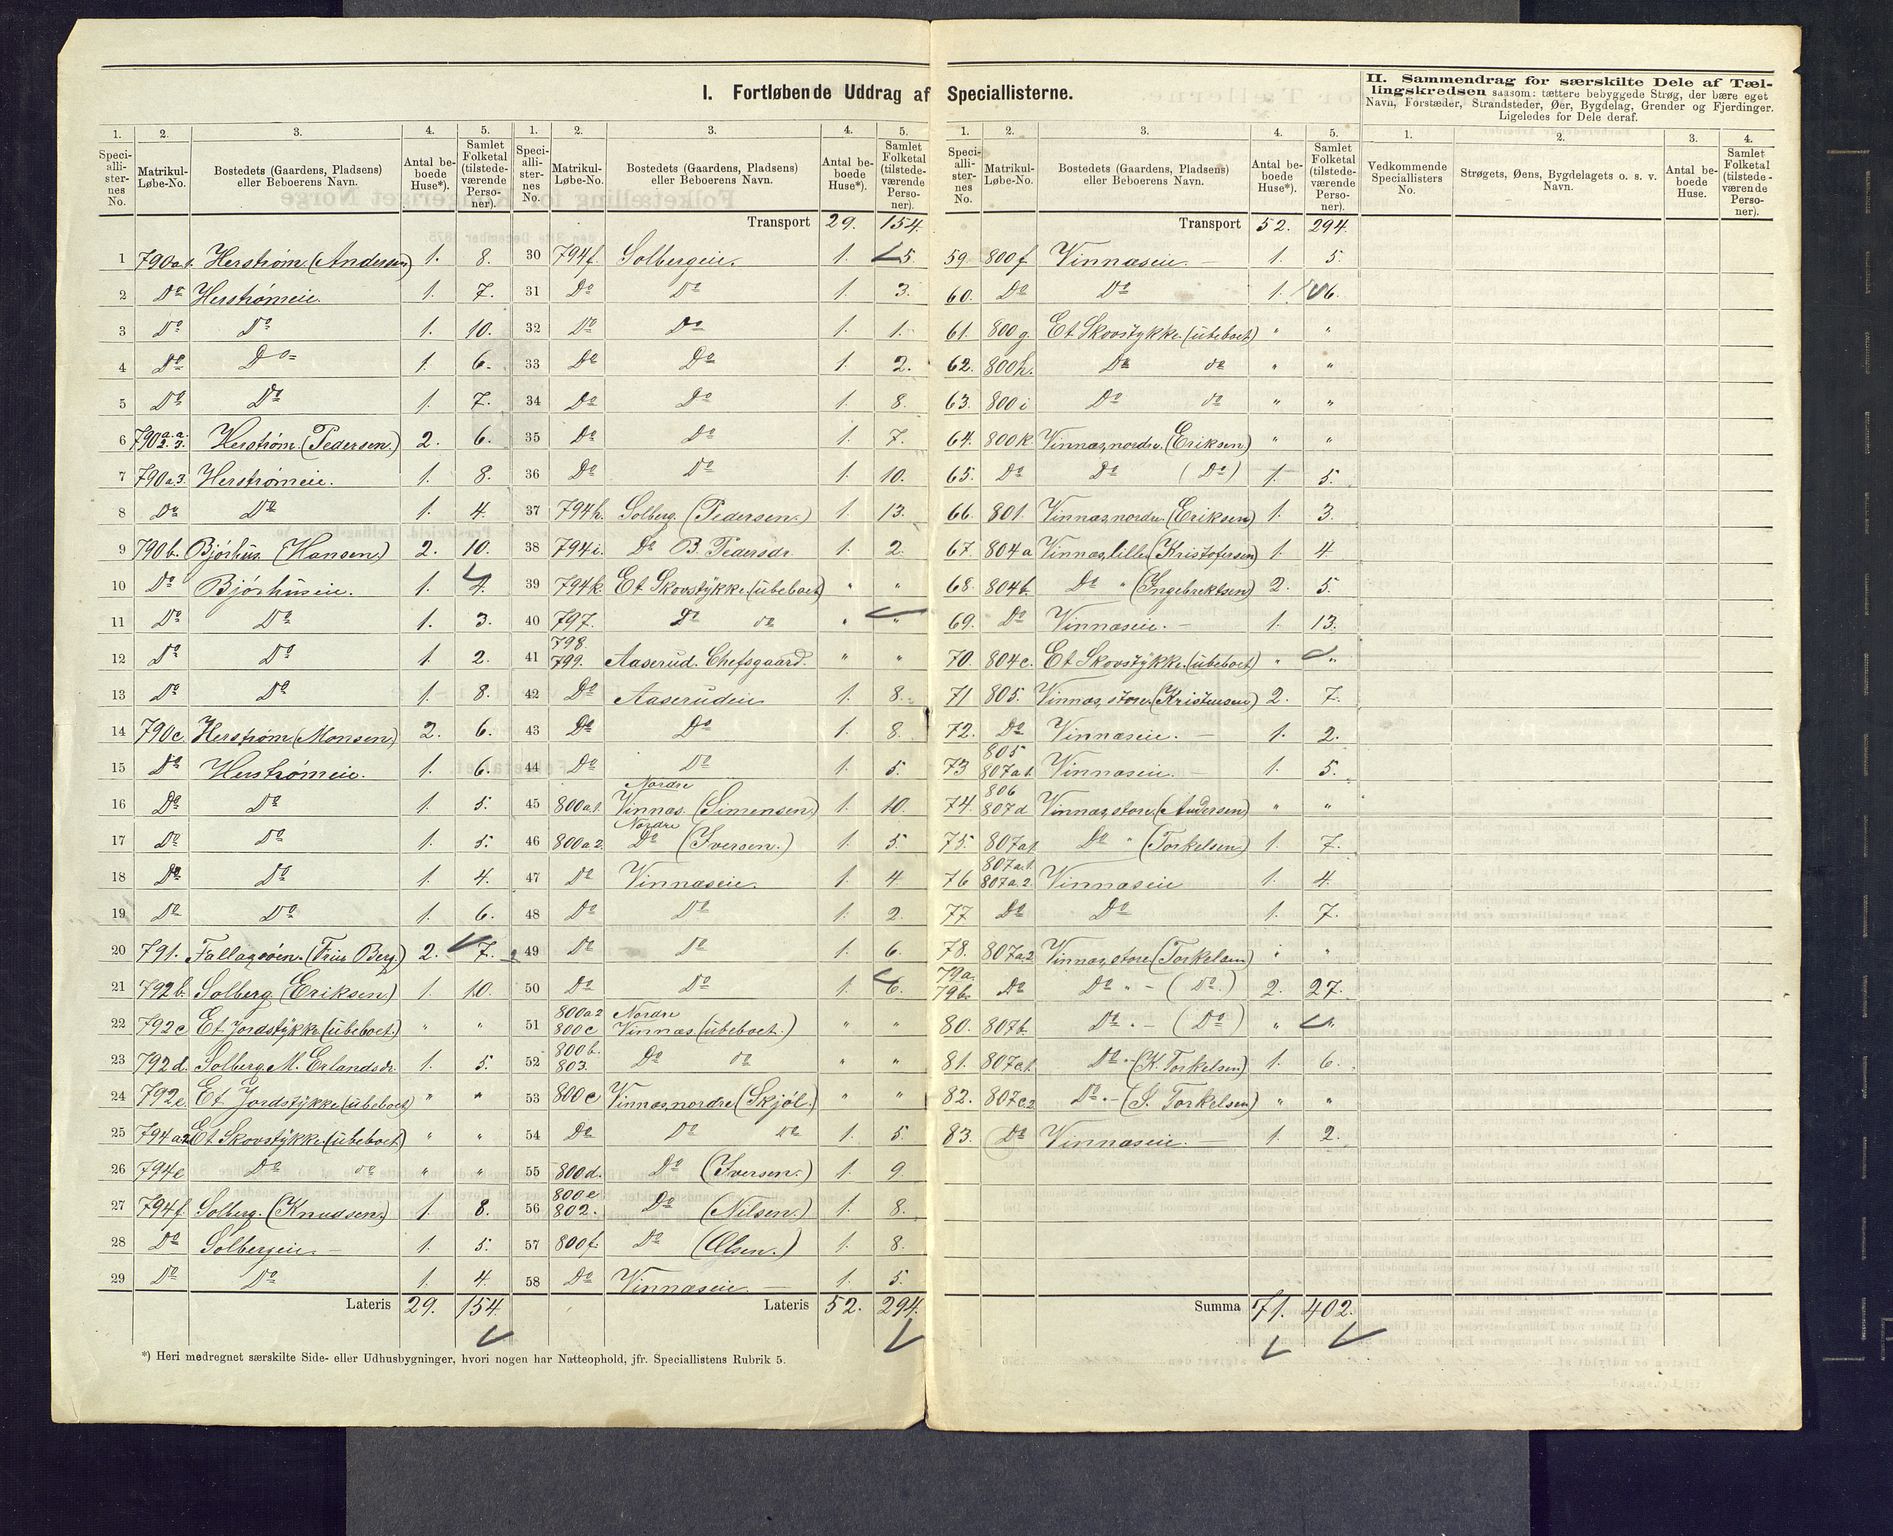 I. Fortløbende Uddrag af Speciallisterne.
II. Sammendrag for særskilte Dele af Tællingskredsen saasom: tættere bebyggede Strøg, der bære eget Navn, Forstæder, Strandsteder, Øer, Bygdelag, Grender og Fjerdinger. Ligeledes for Dele deraf.
1. 2. 3. 4. 5.
Speciallisternes No. Matrikul-Løbe-No. Bostedets (Gaardens, Pladsens) eller Beboerens Navn. Antal beboede Huse*). Samlet Folketal (tilstedeværende Personer).
1 790a1. Herstrøm (Andersen) 1. 8.
2 Do Herstrømeie. 1. 7.
3 Do Do 1. 10.
4 Do Do 1. 6.
5 Do Do 1. 7.
6 790a2. a3. Herstrøm (Pedersen.) 2. 6.
7 790a3 Herstrømeie. 1. 8.
8 Do Do 1. 4.
9 790b. Bjørhus (Hansen) 2. 10.
10 Do Bjørhuseie. 1. 4.
11 Do Do 1. 3.
12 Do Do 1 2.
13 Do Do 1. 8.
14 790c. Herstrøm (Monsen) 2. 6.
15 Do Herstrømeie. 1. 6.
16 Do Do 1. 5.
17 Do Do 1. 5.
18 Do Do 1. 4.
19 Do Do 1. 6.
20 791. (Berg.) 2. 7.
21 792b. Solberg (Eriksen) 1. 10.
22 792c Et Jordstykke (ubeboet.) " "
23 792d. Solberg M. Erlandsdr. 1. 5.
24 792e. Et Jordstykke (ubeboet) " "
25 794a2 Et Skovstykke (ubeboet) " "
26 794e Do do " "
27 794f. Solberg. (Knudsen.) 1 8.
28 Do Solbergeie. 1. 5.
29 Do Do 1. 4.
Lateris 29. 154.
1. 2. 3. 4. 5.
Speciallisternes No. Matrikul-Løbe-No. Bostedets (Gaardens, Pladsens) eller Beboerens Navn. Antal beboede Huse*). Samlet Folketal (tilstedeværende Personer).
Transport 29. 154.
30 794f. Solbergeie. 1. 5.
31 Do Do 1. 3.
32 Do Do 1 1.
33 Do Do 1 2.
34 Do Do 1. 8.
35 Do Do 1. 7.
36 Do Do 1. 10.
37 794h. Solberg. (Pedersen.) 1. 13.
38 794i. Do B. Pedersdr. 1. 2.
39 794k. Et Skovstykke (ubeboet) " "
40 797. Do do " "
41 798. 799. Aaserud. Chefsgaard. " "
42 Do Aaserudeie 1. 8.
43 Do Do 1. 8.
44 Do Do 1. 5.
45 800a1. Nordre Vinnæs. (Simensen.) 1. 10.
46 800a2. Nordre Do (Iversen.) 1. 5.
47 Do Vinnæseie. 1. 4
48 Do Do 1. 2.
49 Do Do 1. 6.
50 Do Do 1 6.
51 800a2 800c Nordre Vinnæs (ubeboet.) " "
52 800b. 803. Do do " "
53 800c Vinnæs, nordre (Skjøl.) " "
54 Do Do Do 1. 5.
55 800d. Do (Iversen.) 1. 9
56 800e 802. Do (Nilsen.) 1. 8.
57 800f. Do (Olsen.) 1. 8.
58 Do Vinnæseie 1. 5.
Lateris 52. 294.
1. 2. 3. 4. 5.
Speciallisternes No. Matrikul-Løbe-No. Bostedets (Gaardens, Pladsens) eller Beboerens Navn. Antal beboede Huse*). Samlet Folketal (tilstedeværende Personer).
Transport 52. 294.
59. 800f Vinnæseie. 1. 5
60. Do Do 1. 6.
61. 800g. Et Skovstykke (ubeboet) " "
62. 800h. Do do " "
63. 800i Do do " "
64. 800k. Vinnæs, nordre (Eriksen) " "
65. Do Do (Do) 1 5.
66. 801. Vinnæs, nordre (Eriksen) 1. 3.
67. 804a Vinnæs, lille (Kristofersen) 1. 4
68. 804b. Do " (Ingebrektsen) 2. 5.
69. Do Vinnæseie. 1. 13.
70. 804c. Et Skovstykke (ubeboet) " "
71 805. Vinnæs, store (Kristensen) 2. 7.
72. Do Vinnæseie. 1. 2.
73 805 807a1. Vinnæseie. 1. 5.
74. 806 807d Vinnæs, store (Andersen) " "
75. 807a1. Do " (Torkelsen) 1. 7.
76 807a.1. 807a.2. Vinnæseie 1. 4.
77 Do Do 1. 7.
78. 807a2 Vinnæs, store (Torkelsen) " "
79a. 79b. Do Do " (Do.) 2. 27.
80. 807b. Do " (Do) " "
81. 807c1. Do (K. Torkelsen) 1. 6
82. 807c2. Do (S. Torkelsen) " "
83. Do Vinnæseie. 1. 2.
Summa 71. 402.
1. 2. 3. 4.
Vedkommende Speciallisters No. Strøgets, Øens, Bygdelagets o. s. v. Navn. Antal beboede Huse. Samlet Folketal (tilstedeværende Personer).
*) Heri medregnet særskilte Side- eller Udhusbygninger, hvori nogen har Natteophold, jfr. Speciallistens Rubrik 5.